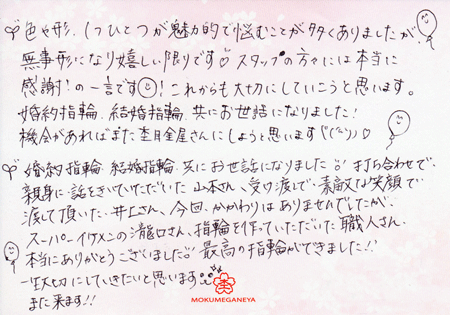 色や形、1つひとつが魅力的で悩むことが多くありましたが、
無事形になり嬉しい限りです♡ スタッフの方々には本当に
感謝!の一言です☺!これからも大切にしていこうと思います。
婚約指輪、結婚指輪、共にお世話になりました!
機会があればまた杢目金屋さんにしようと思います♡
婚約指輪、結婚指輪、共にお世話になりました!!打ち合わせで、
親身に話をきいていただいた山本さん、受け渡しで、素敵な笑顔で
渡して頂いた井上さん、今回、かかわりはありませんでしたが、
スーパーイケメンの瀧口さん、指輪を作っていただいた職人さん、
本当にありがとうございました!! 最高の指輪ができました!!
一生大切にしていきたいと思います
また来ます!!
MOKUMEGANEYA